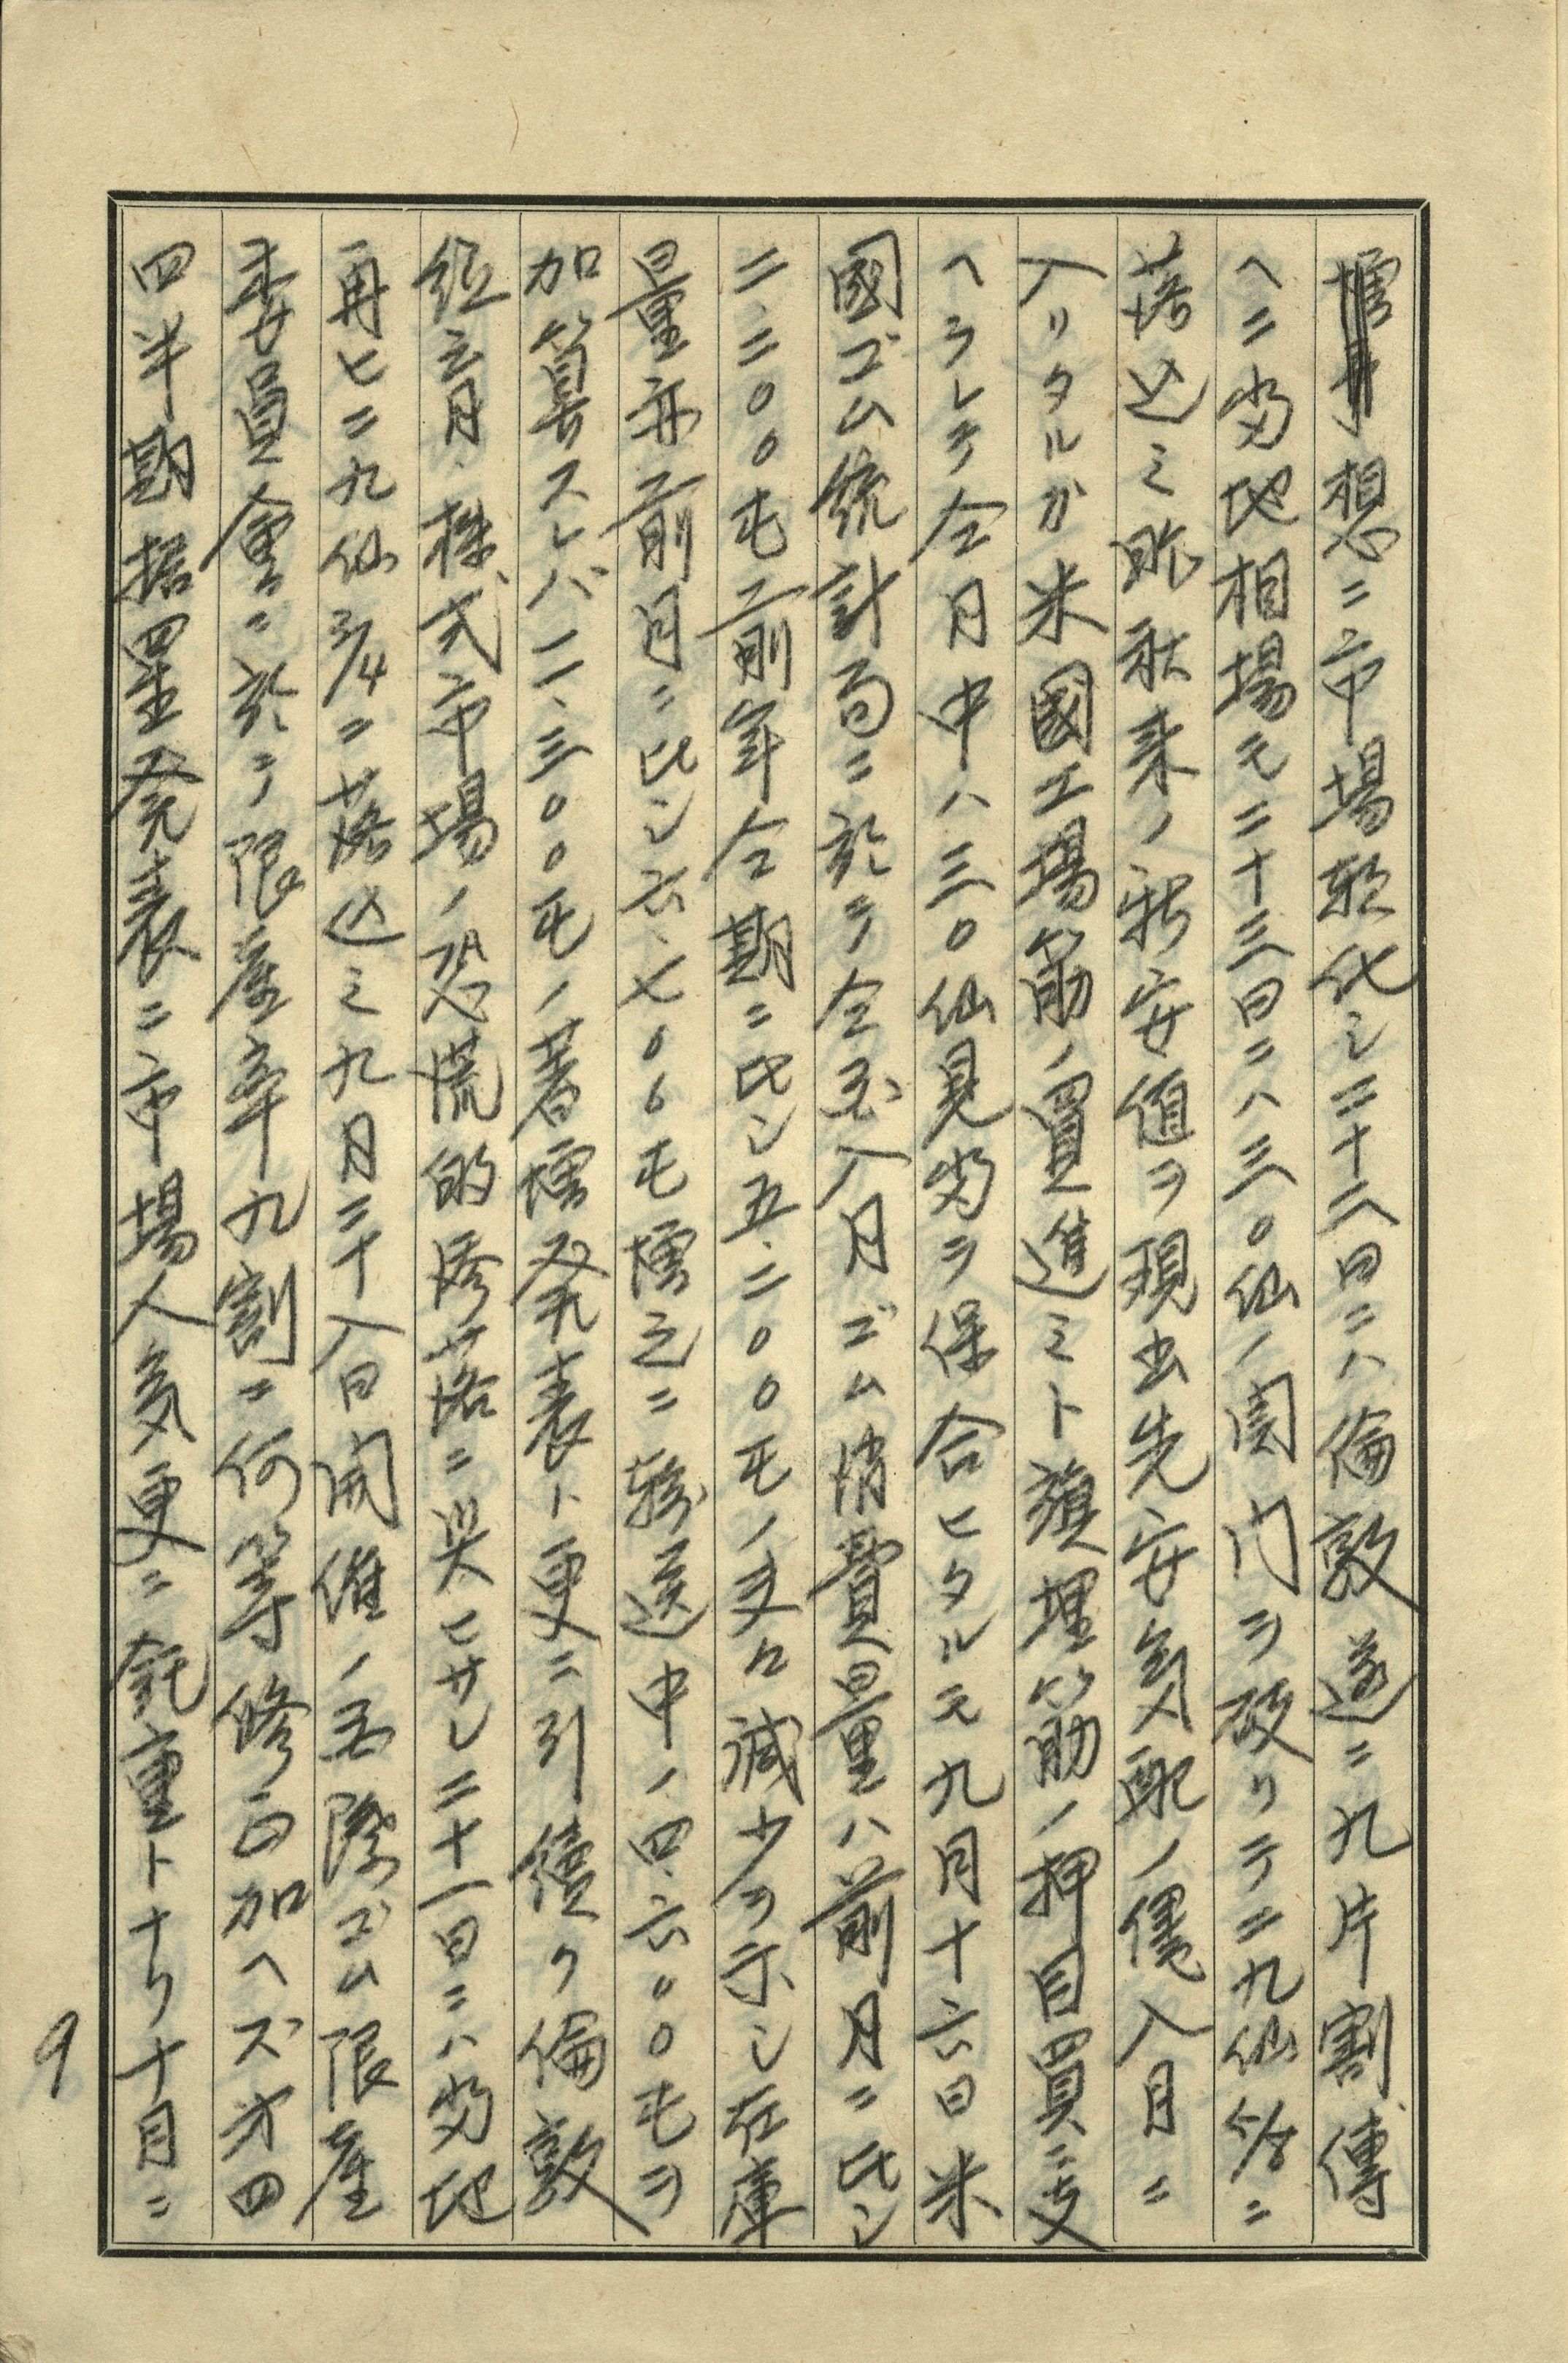 予想ニ市場軟化シ二十二日ニハ倫敦遂ニ九片割傳
ヘニ當地相場モ二十三日ニハ三〇仙ノ関門ヲ破リテ二九仙5/8ニ
落込ミ昨秋来ノ新安値ヲ現出先安気配ノ儘八月ニ
入リタルガ米國工場筋ノ買進ミト旗埋筋ノ押目買ニ支
ヘラレテ仝月中ハ三〇仙見當ヲ保合ヒタルモ九月十六日米
國ゴム統計局ニ於テ仝國八月ゴム消費量ハ前月ニ比シ
二、二〇〇屯前年仝期ニ比シ五、二〇〇屯ノ夫々減少ヲ示シ在庫
量亦前月ニ比シ六、七〇〇屯増之ニ輸送中ノ四、六〇〇屯ヲ
加算スレバ一一、三〇〇屯ノ著増発表ト更ニ引續ク倫敦
紐育株式市場ノ恐慌的惨落ニ災ヒサレ二十一日ニハ當地
再ヒ二九仙3/4ニ落込ミ九月二十八日開催ノ國際ゴム限産
委員會ニ於テ限産率九割ニ何等修正加ヘズ第四
四半期据置発表ニ市場人気更ニ鈍重トナリ十月ニ
9